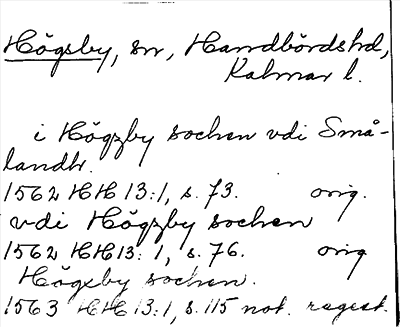 Högsby, sn, Handbördshd,
Kalmar l.
i Högzby sochen vdi Små-
landh.
1562 HH 13:1, s. 73. orig.
vdi Högzby sochen
1562 HH 13:1, s. 76. orig
Högxby sochen.
1563 HH 13:1, s. 115 not. regest.